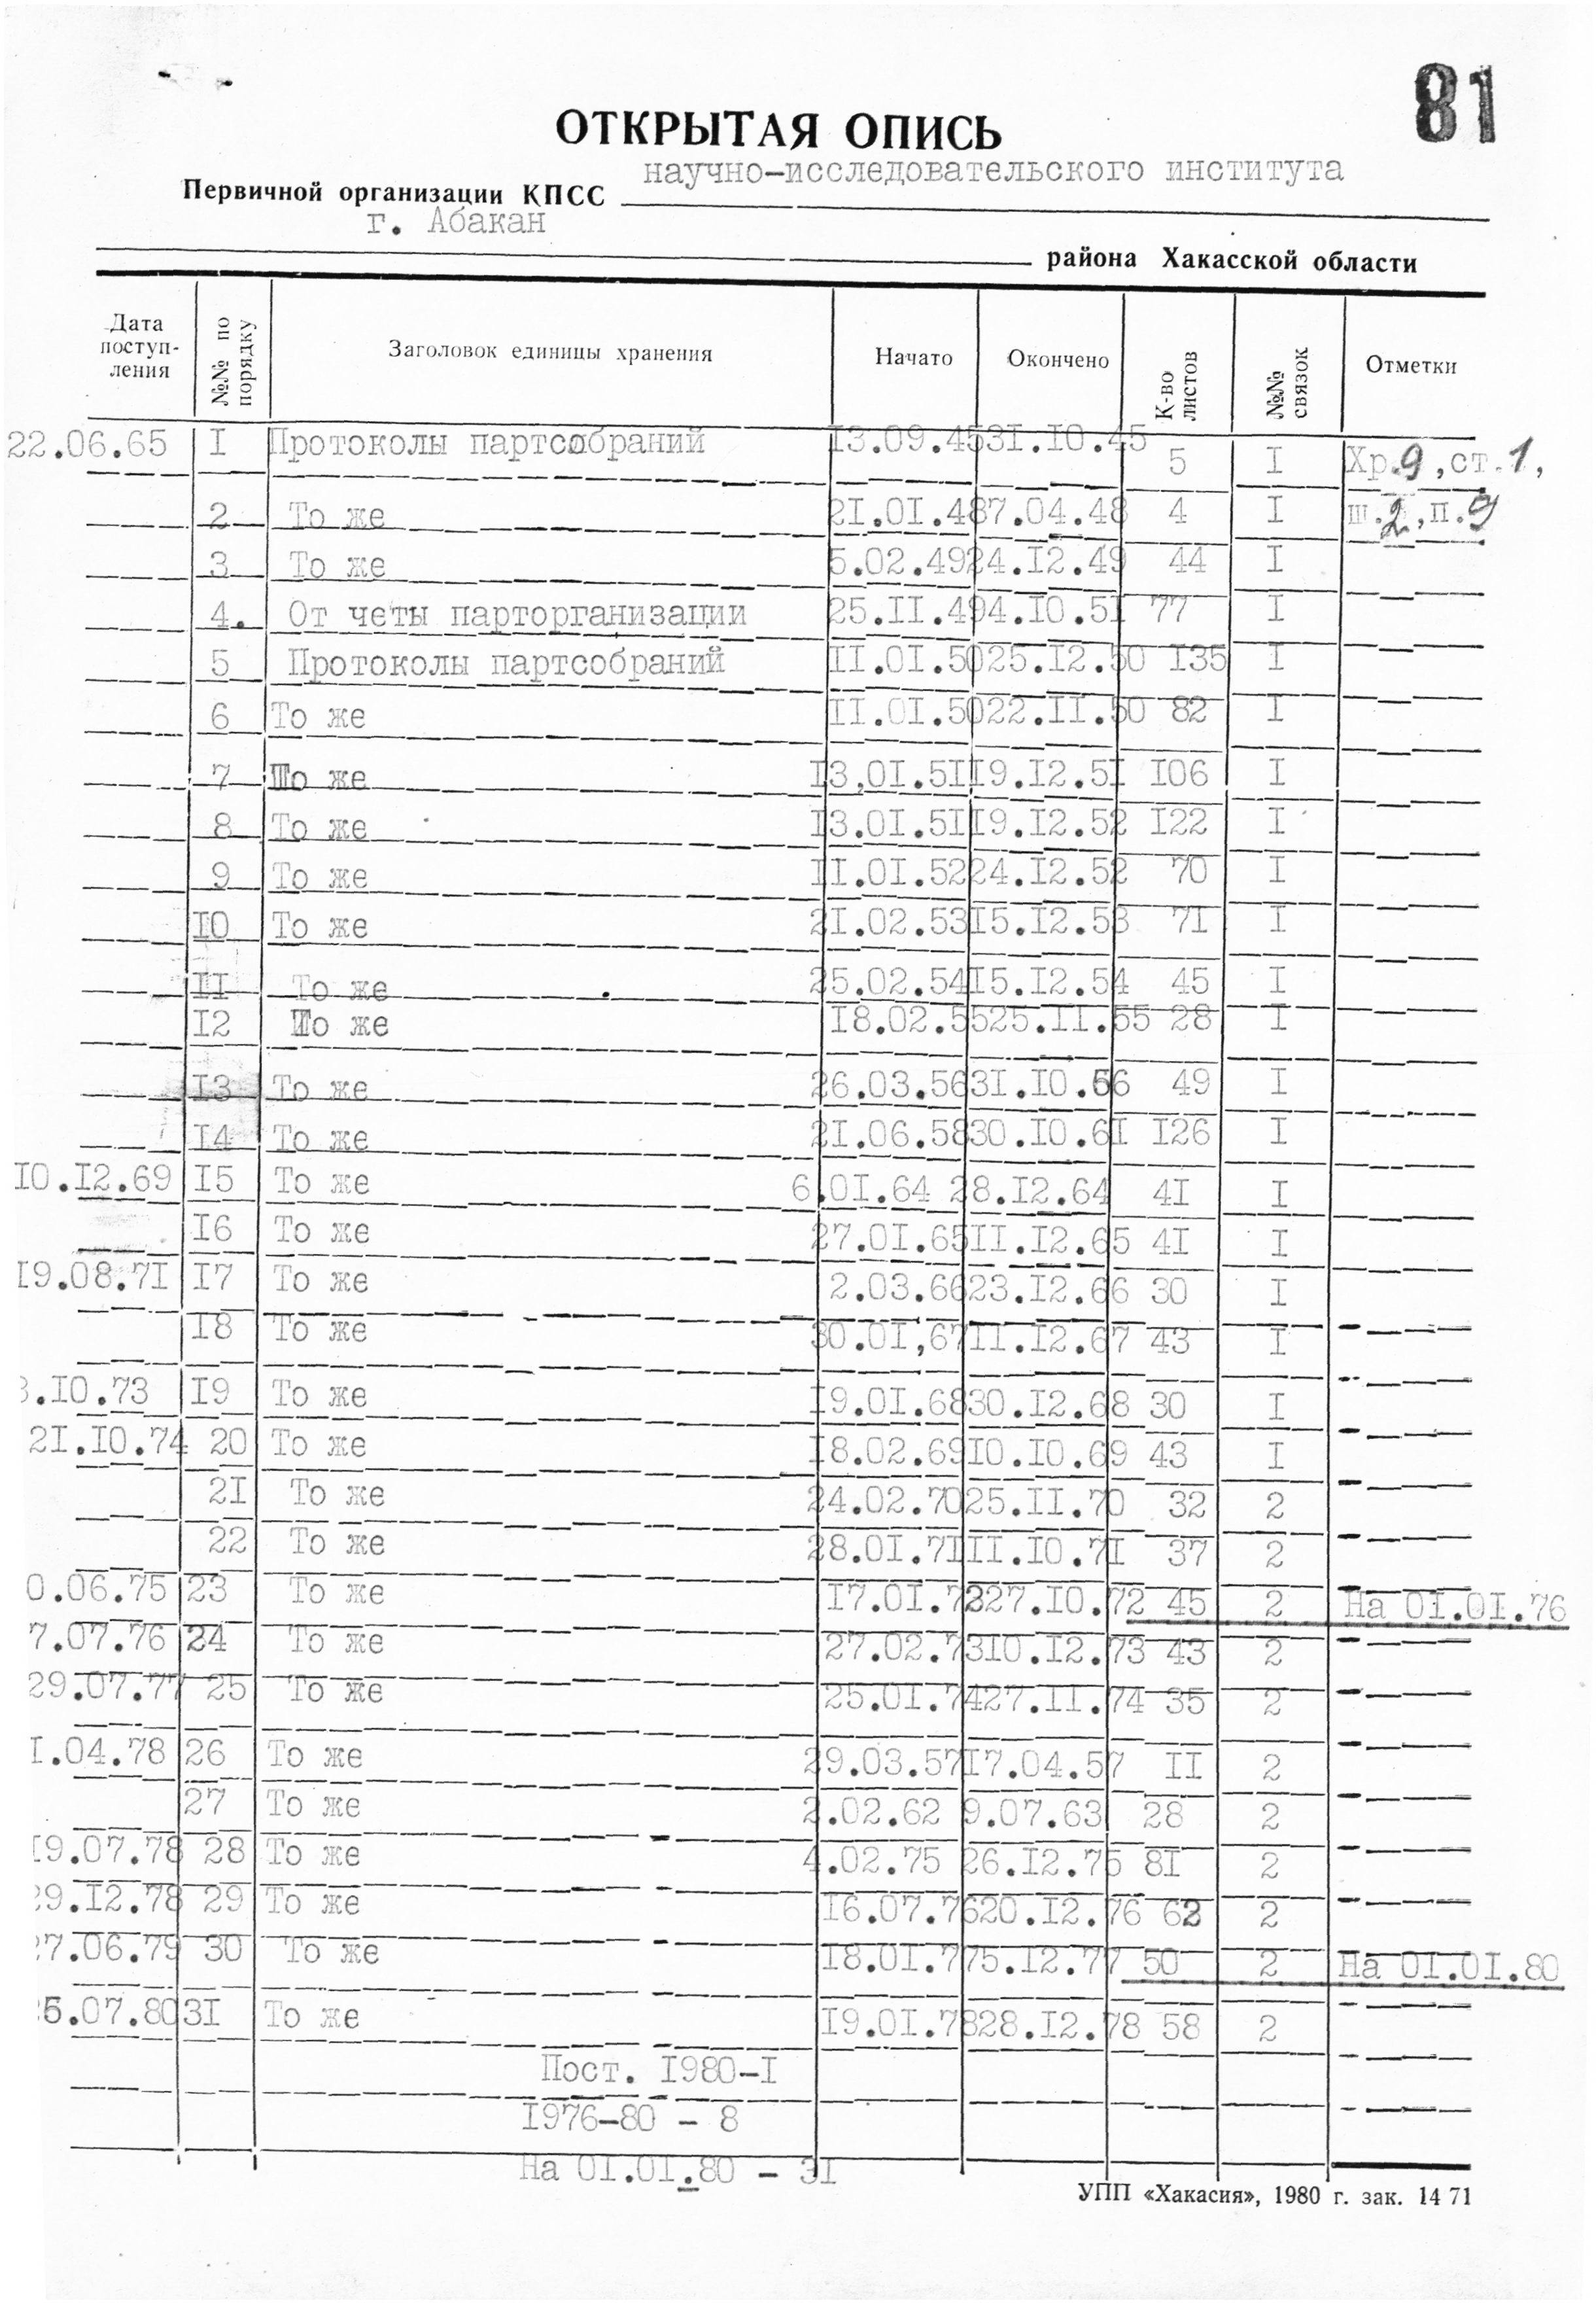 81
ОТКРЫТАЯ ОПИСЬ
Первичной организации КПСС научно-исследовательского института
г. Абакан
района Хакасской области
Дата поступ- ления №№ по порядку Заголовок единицы хранения Начато Окончено К-во листов №№ связок Отметки
22.06.65 I Протоколы партсобраний 13.09.45 31.10.45 5 I Хр.9,ст.1,
2 То же 21.01.48 7.04.48 4 I ш.2,п.9
3 То же 5.02.49 24.12.49 44 I
4. От четы парторганизации 25.II.49 4.10.51 77 I
5 Протоколы партсобраний II.01.50 25.12.50 135 I
6 То же II.01.50 22.II.50 82 I
7 То же 13,01.51 19.12.51 106 I
8 То же 13.01.51 19.12.52 122 I
9 То же II.01.52 24.12.52 70 I
10 То же 21.02.53 15.12.53 71 I
II То же 25.02.54 15.12.54 45 I
12 То же 18.02.55 25.II.55 28 I
13 То же 26.03.56 31.10.56 49 I
14 То же 21.06.58 30.10.61 126 I
10.12.69 15 То же 6.01.64 28.12.64 41 I
16 То же 27.01.65 II.12.65 41 I
19.08.71 17 То же 2.03.66 23.12.66 30 I
18 То же 30.01,67 II.12.67 43 I
.10.73 19 То же 19.01.68 30.12.68 30 I
21.10.74 20 То же 18.02.69 10.10.69 43 I
21 То же 24.02.70 25.II.70 32 2
22 То же 28.01.71 II.10.71 37 2
0.06.75 23 То же 17.01.72 27.10.72 45 2 На 01.01.76
7.07.76 24 То же 27.02.73 10.12.73 43 2
29.07.77 25 То же 25.01.74 27.II.74 35 2
I.04.78 26 То же 29.03.57 17.04.57 II 2
27 То же 2.02.62 9.07.63 28 2
19.07.78 28 То же 4.02.75 26.12.75 81 2
29.12.78 29 То же 16.07.76 20.12.76 62 2
27.06.79 30 То же 18.01.77 5.12.77 50 2 На 01.01.80
5.07.80 31 То же 19.01.78 28.12.78 58 2
Пост. 1980-I
1976-80 - 8
На 01.01.80 - 31
УПП «Хакасия», 1980 г. зак. 1471